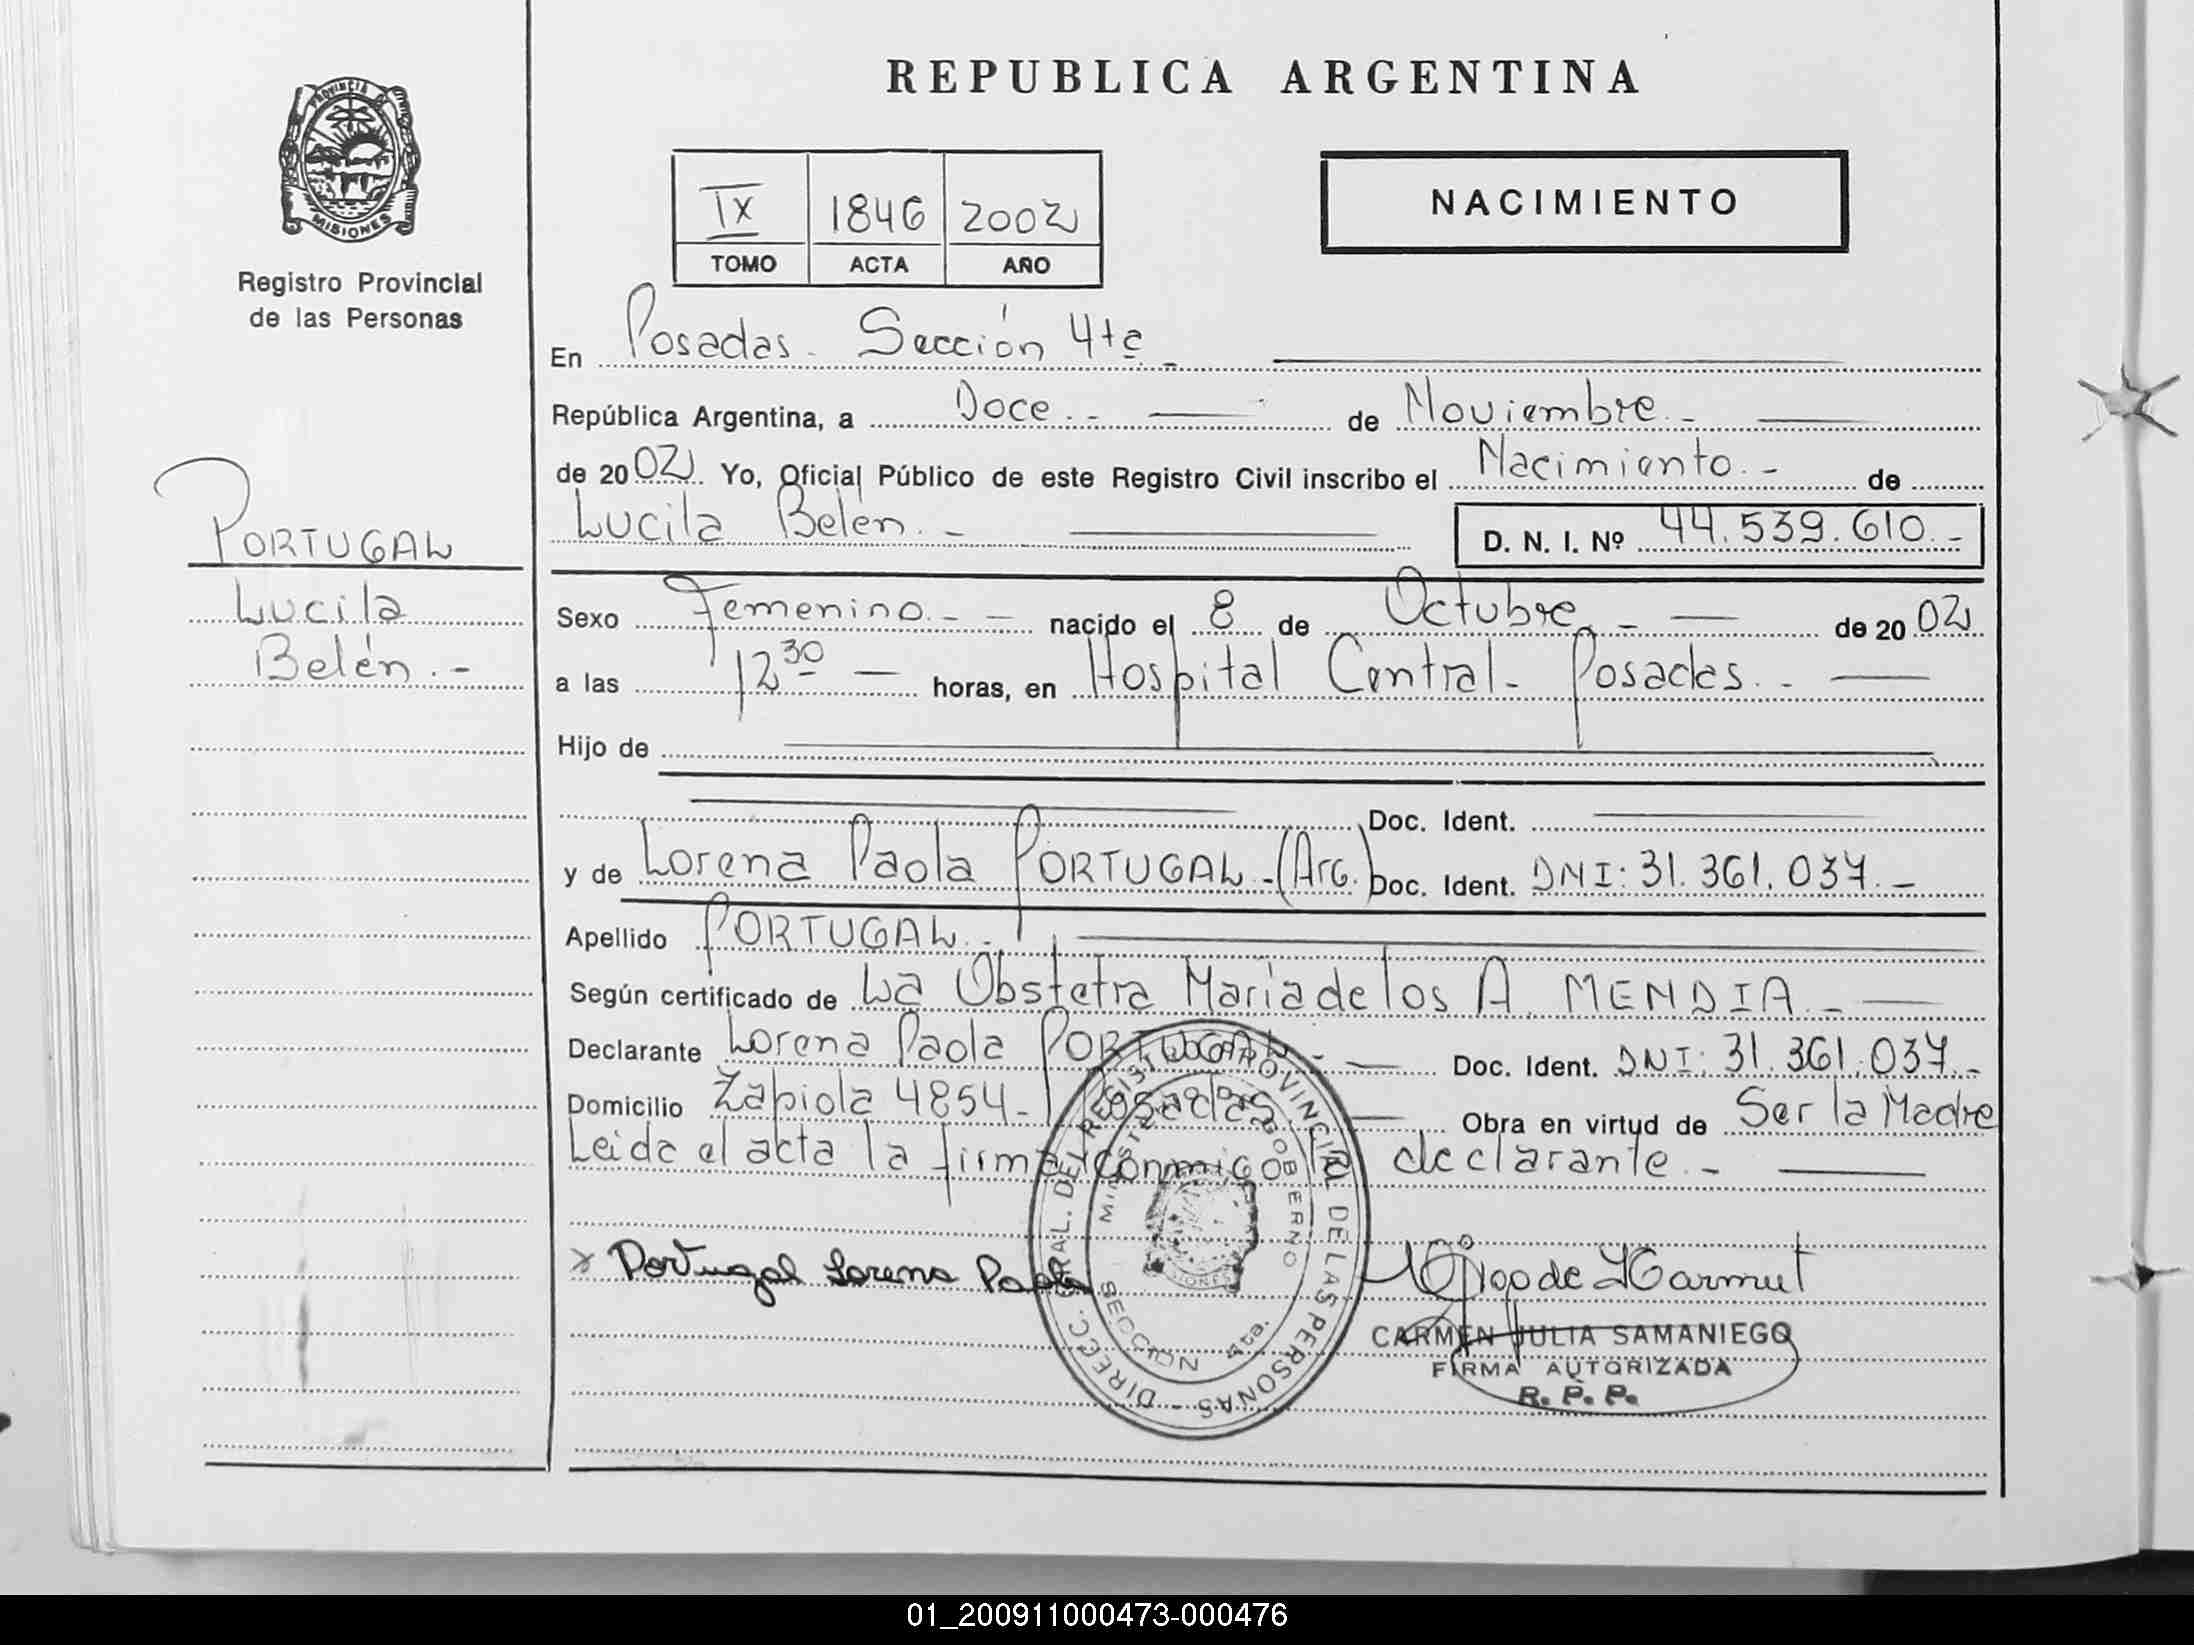 REPUBLICA ARGENTINA
PROVINCIA DE
MISIONES
Registro Provincial
de las Personas
IX 1846 2002
TOMO ACTA AÑO
NACIMIENTO
En Posadas. Sección 4ta
República Argentina, a Doce.- de Noviembre.-
de 2002. Yo, Oficial Público de este Registro Civil inscribo el Nacimiento.- de
Lucila Belen.- D. N. I. Nº 44.539.610.-
PORTUGAL
Lucila
Belén.-
Sexo Femenino.- nacido el 8 de Octubre.- de 2002
a las 12 30 horas, en Hospital Central- Posadas.-
Hijo de
Doc. Ident.
y de Lorena Paola PORTUGAL.-(Arg.) Doc. Ident. DNI: 31.361.037.-
Apellido PORTUGAL.-
Según certificado de La Obstetra Maria de los A. MENDIA.-
Declarante Lorena Paola PORTUGAL.- Doc. Ident. DNI: 31.361.037.-
Domicilio Zapiola 4854- Posadas Obra en virtud de Ser la Madre
Leida el acta la firma conmigo la declarante.-
x Portugal Lorena Paola
DIRECC. GRAL. DEL REGISTRO PROVINCIAL DE LAS PERSONAS -
SECCION 4ta.
CARMEN JULIA SAMANIEGO
FIRMA AUTORIZADA
R. P. P.
01_200911000473-000476